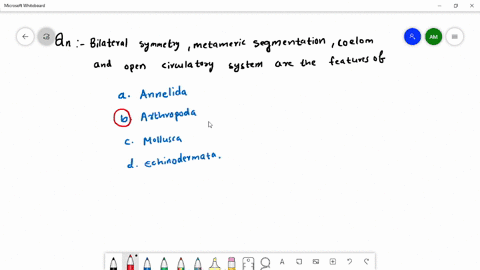 Microsoft Whiteboard
Qn :- Bilateral symmetry, metameric segmentation, coelom
and open circulatory system are the features of
a. Annelida
b. Arthropoda
c. Mollusca
d. Echinodermata.
AM